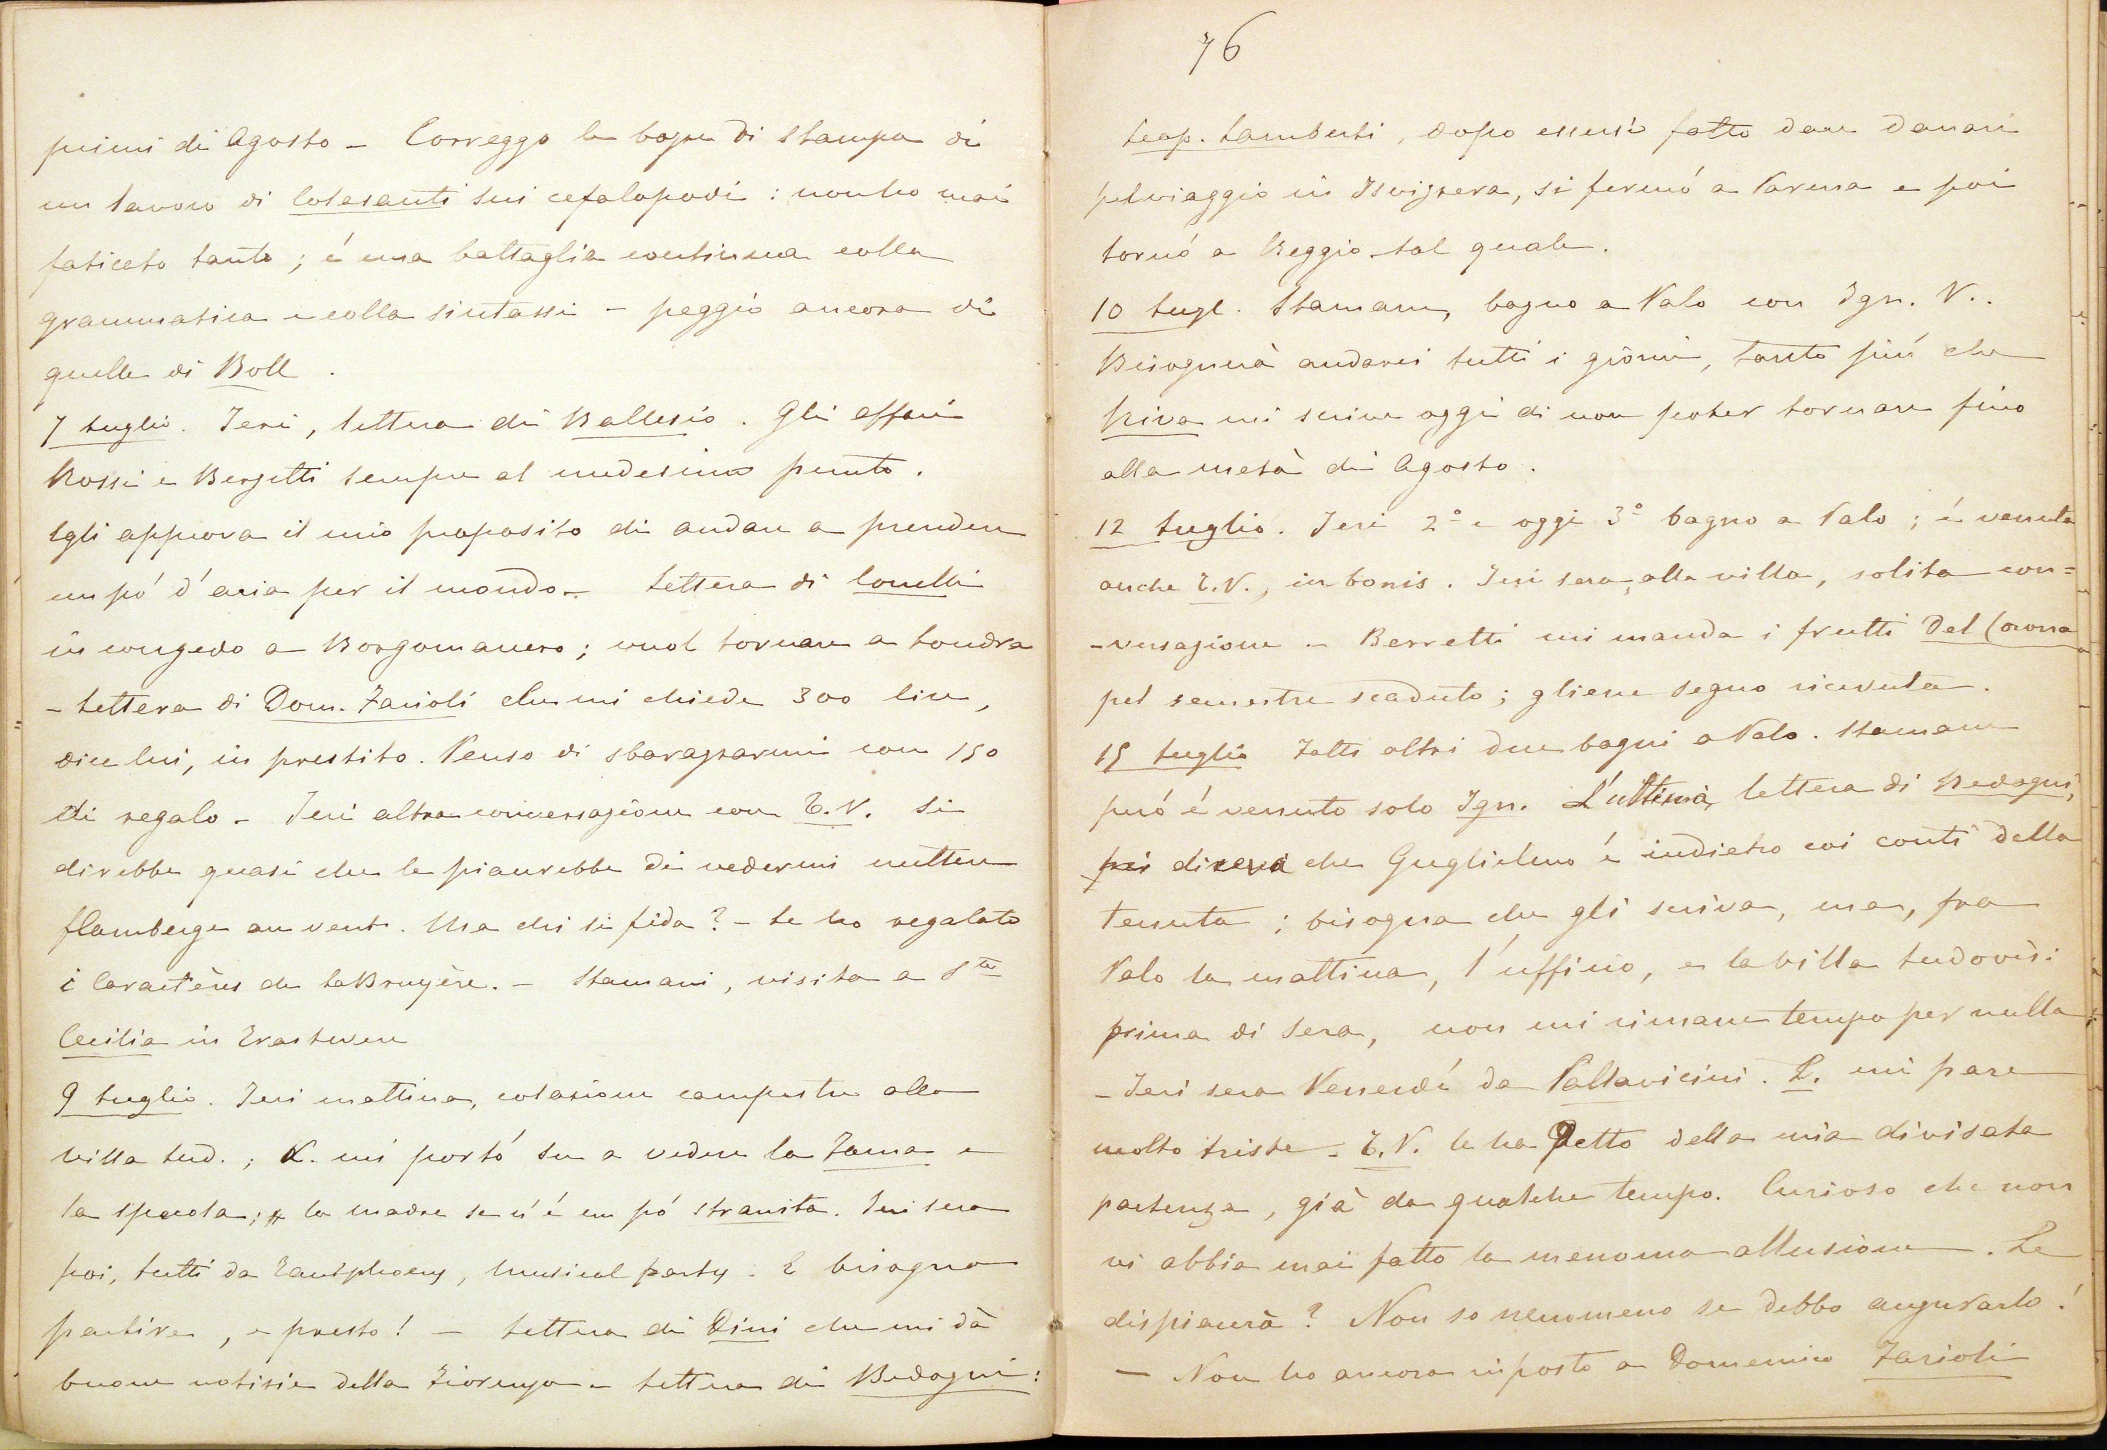 primi di Agosto – Correggo le bozze di stampa di
un lavoro di Colasanti sui cefalopodi : non ho mai
faticato tanto ; é una battaglia continua colla
grammatica e colla sintassi – peggio ancora di
quelle di Boll .
7 Luglio. Ieri, lettera di Ballesio. Gli affari
Rossi e Bergetti sempre al medesimo punto.
Egli approva il mio proposito di andare a prendere
un pó d'aria per il mondo – Lettera di Conelli
in congedo a Borgomanero ; vuol tornare a Londra
– Lettera di Dom. Farioli che mi chiede 300 lire,
dice lui, in prestito. Penso di sbarazzarmi con 150
di regalo – Ieri altra conversazione con E.V. Si
direbbe quasi che le piacerebbe di vedermi mettere
flamberge au vent. Ma chi si fida ? – Le ho regalato
i Caractères de LaBruyère. – Stamani, visita a Sta
Cecilia in Trastevere
9 Luglio. Ieri mattina, colazione campestre alla
villa Lud. ; L. mi portó su a vedere la Fama e
la specola ; la madre se n'é un pó stranita. Ieri sera
poi, tutti da , musical party. E bisogna
partire, e presto ! – Lettera di Dini che mi dà
buone notizie della Fiorenza – Lettera di Bedogni :
76
Leop. Lamberti, dopo essersi fatto dare danari
pel viaggio in Isvizzera, si fermó a Parma e poi
tornó a Reggio tal quale.
10 Lugl. Stamane, bagno a Palo con Ign. V..
Bisognerà andarci tutti i giorni, tanto piú che
Piva mi scrive oggi di non poter tornare fino
alla metà di Agosto.
12 Luglio. Ieri 2° e oggi 3° bagno a Palo ; é venuta
anche E.V., in bonis. Ieri sera, alla villa, solita con=
-versazione – Berretti mi manda i frutti Del Corona
pel semestre scaduto ; gliene segno ricevuta.
15 Luglio Fatti altri due bagni a Palo. Stamane
peró é venuto solo Ign. L'ultima lettera di Bedogni,
poi diceva che Guglielmo é indietro coi conti della
tenuta ; bisogna che gli scriva, ma, fra
Palo la mattina, l'ufficio, e la villa Ludovisi
prima di sera, non mi rimane tempo per nulla
– Ieri sera Venerdí da Pallavicini. L. mi pare
molto triste – E.V. le ha detto della mia divisata
partenza, già da qualche tempo. Curioso che non
vi abbia mai fatto la menoma allusione. Le
dispiacerà ? Non so nemmeno se debbo augurarlo !
– Non ho ancora risposto a Domenico Farioli